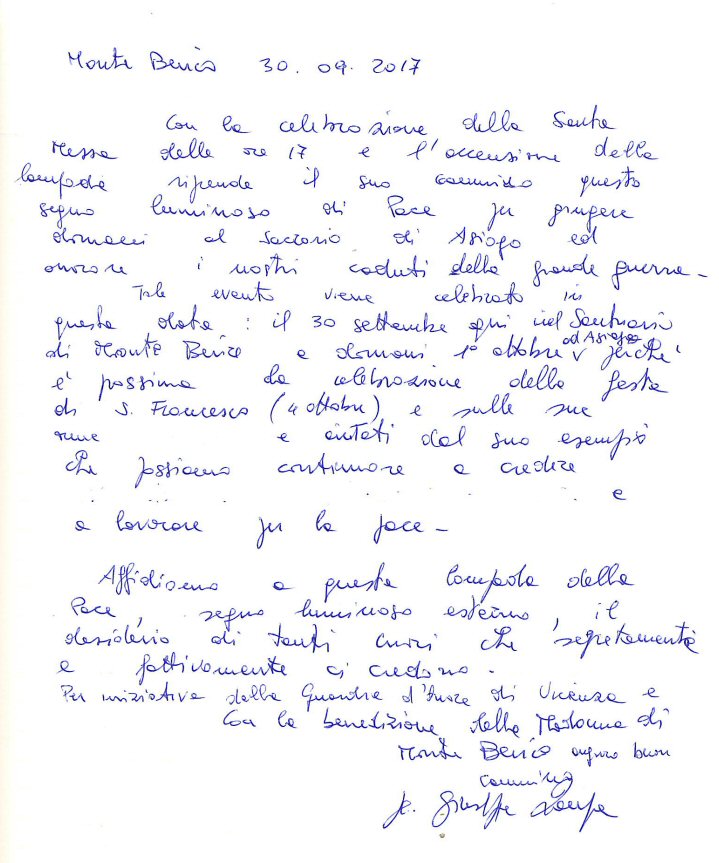 Monte Berico 30.09.2017
Con la celebrazione della Santa
Messa delle ore 17 e l'accensione della
lampada riprende il suo cammino questo
segno luminoso di Pace per giungere
domani al Sacrario di Asiago ed
onorare i nostri caduti della grande guerra -
Tale evento viene celebrato in
questa data : il 30 settembre qui nel Santuario
di Monte Berico e domani 1° ottobre ad Asiago perché
è prossima la celebrazione della festa
di S. Francesco (4 ottobre) e sulle sue
orme e aiutati dal suo esempio
che possiamo continuare a credere
e
a lavorare per la pace -
Affidiamo a questa lampada della
Pace, segno luminoso esterno, il
desiderio di tanti cuori che segretamente
e fattivamente ci credono.
Per iniziativa della Guardia d'Onore di Vicenza e
Con la benedizione della Madonna di
Monte Berico auguro buon
cammino
p. Giuseppe